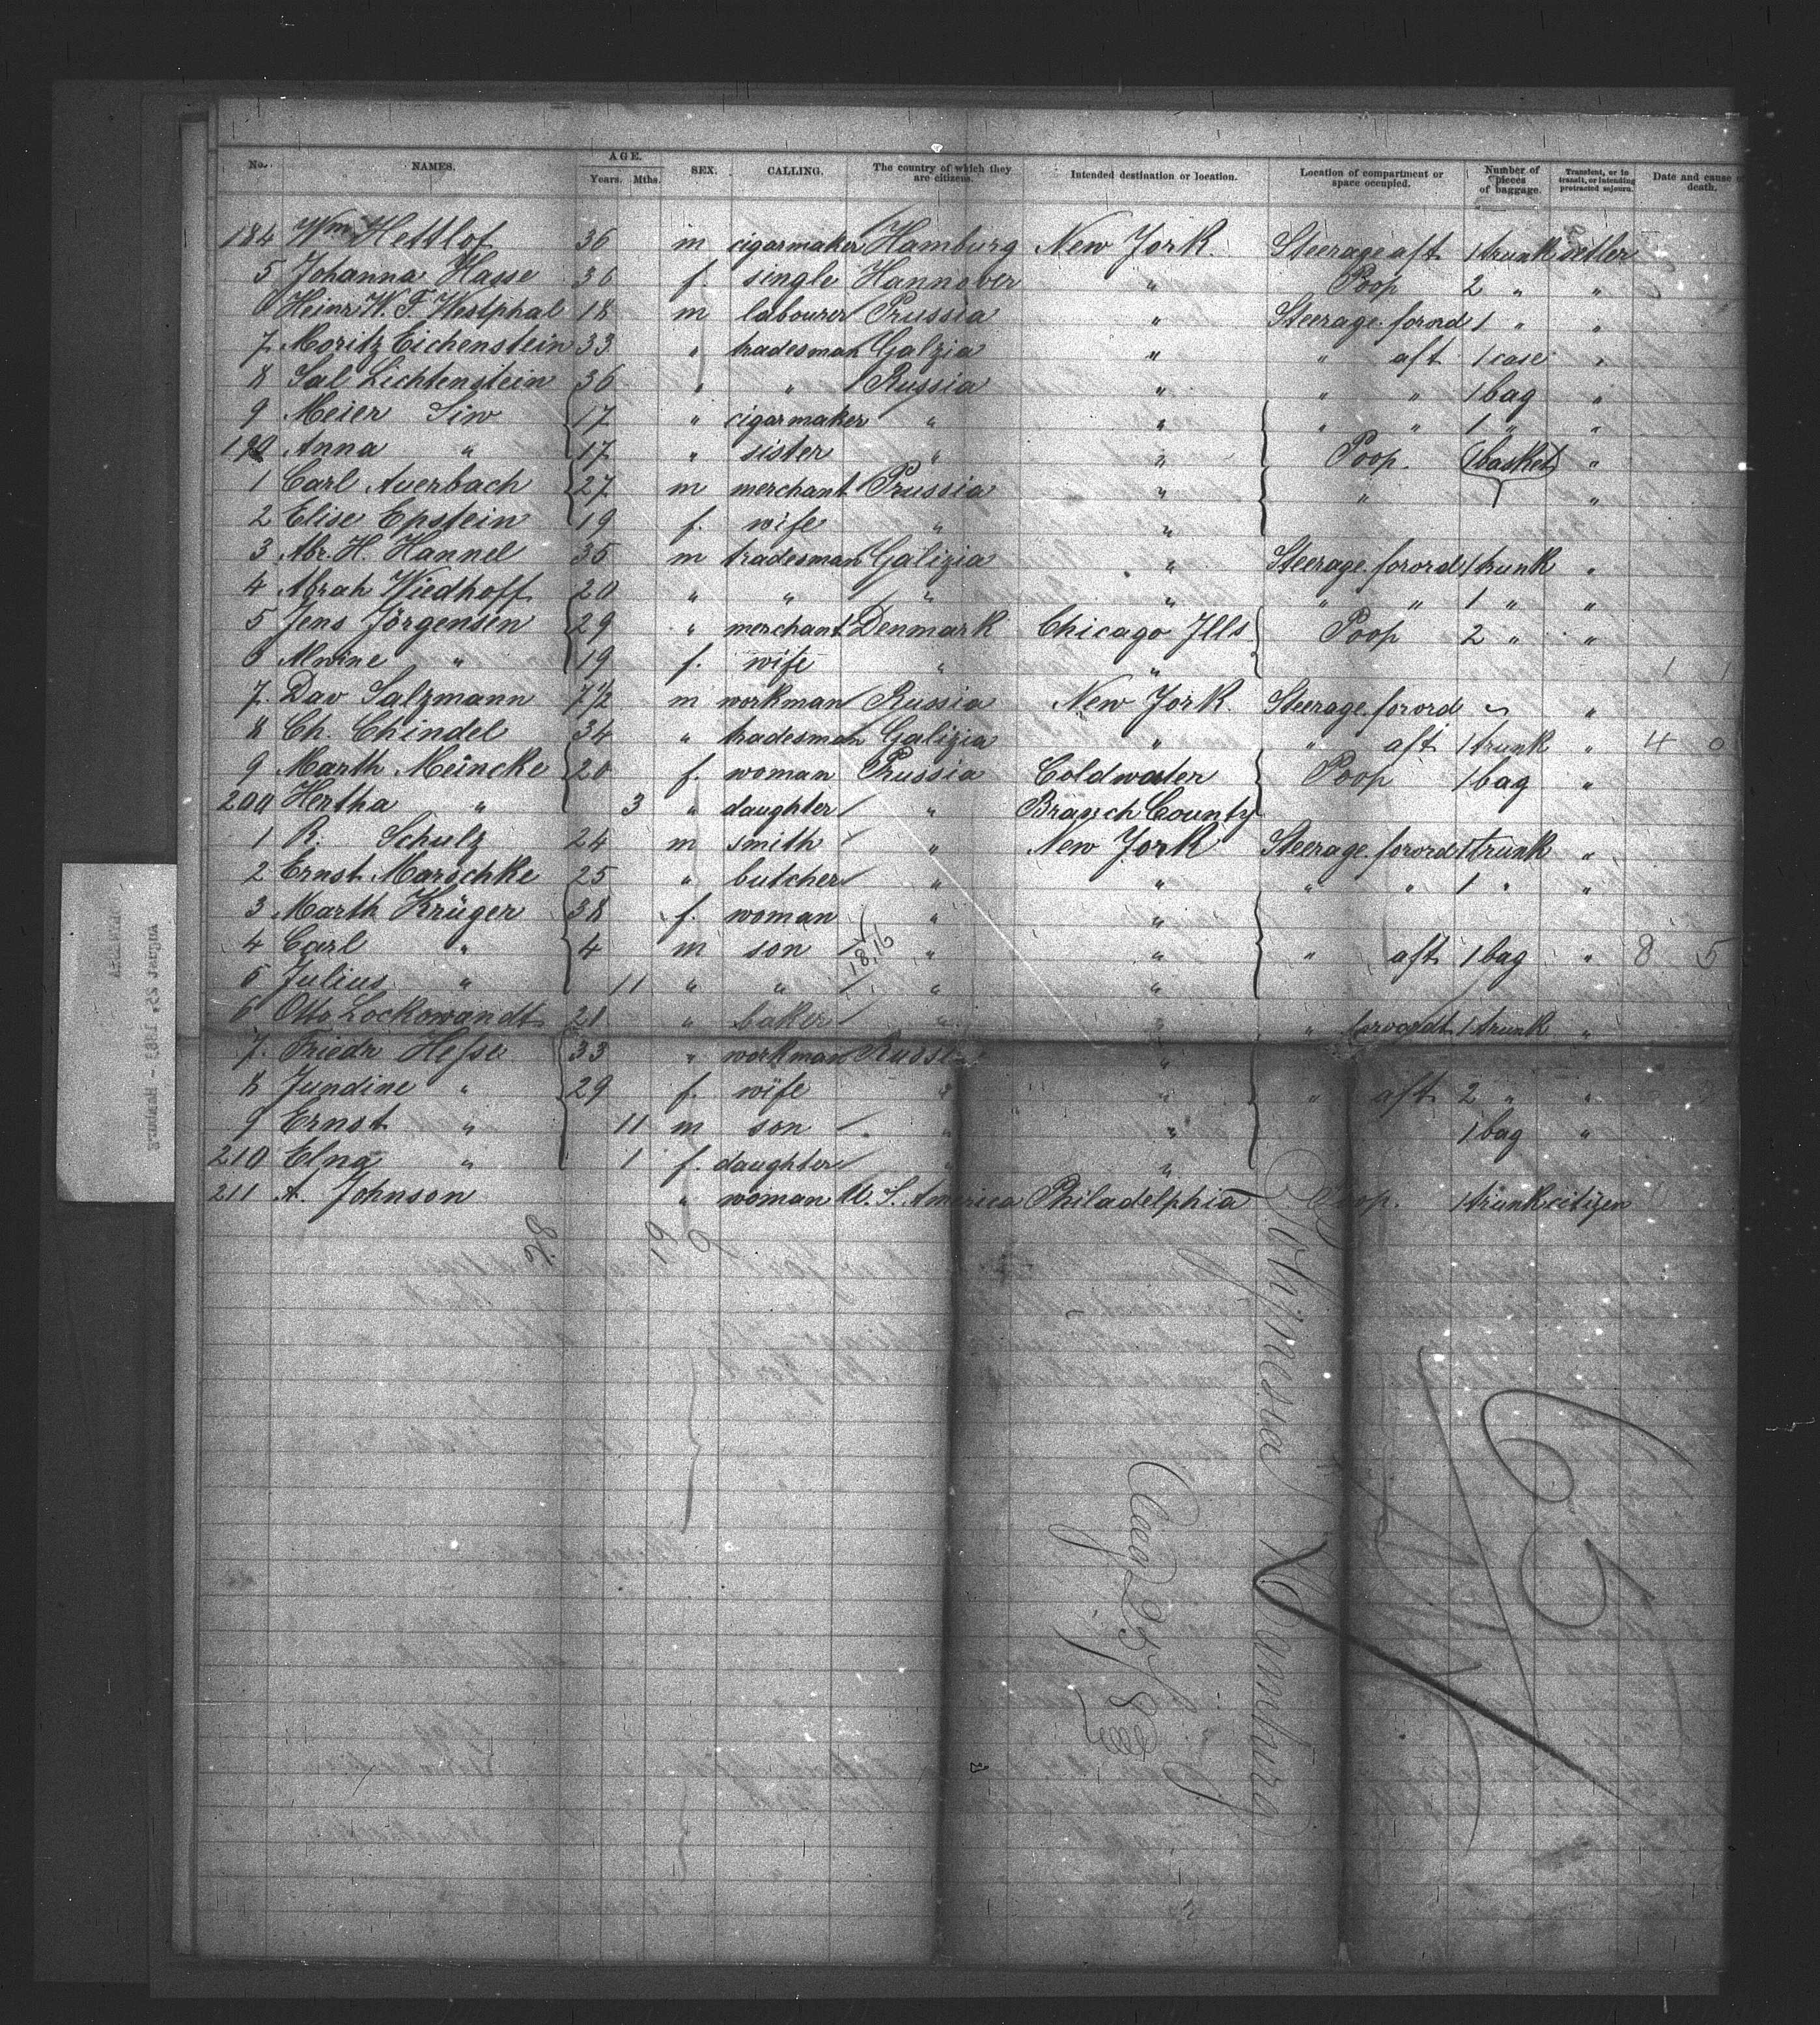 No. NAMES. AGE. Years. Mths. SEX. CALLING. The country of which they are citizens. Intended destination or location. Location of compartment or space occupied. Number of pieces of baggage. Transient, or in transit, or intending protracted sojourn. Date and cause of death.
184 Wm Hettlof 36 m cigarmaker Hamburg New York. Steerage aft 1 trunk settler
5 Johanna Hasse 36 f. single Hannover " Poop 2 " "
6 Heinr W. F. Westphal 18 m labourer Prussia " Steerage forord 1 " "
7 Moritz Eichenstein 33 " tradesman Galzia " " aft 1 case "
8 Sal Lichtenstein 36 " " Russia " " " 1 bag "
9 Meier Siw 17 " cigarmaker " " " " 1 " "
190 Anna " 17 " sister " " Poop. (basket) "
1 Carl Auerbach 27 m merchant Prussia " " "
2 Elise Epstein 19 f. wife " "
3 Abr. H. Hannel 35 m tradesman Galizia " Steerage forord 1 trunk "
4 Abrah Wiedhoff 20 " " " " " " 1 " "
5 Jens Jörgensen 29 " merchant Denmark Chicago Ills Poop 2 " "
6 Alwine " 19 f. wife " " 1 1
7. Dav Salzmann 7 1/2 m workman Russia New York. Steerage forord "
8 Ch. Chindel 34 " tradesman Galizia " " aft 1 trunk " 4 0
9 Marth Meincke 20 f. woman Prussia Coldwater Poop 1 bag "
200 Hertha " 3 " daughter " Branch County
1 R. Schulz 24 m smith " New York Steerage forord 1 trunk "
2 Ernst Marschke 25 " butcher " " " " 1 " "
3 Marth Krüger 38 f. woman " "
4 Carl " 4 m son " " " aft 1 bag " 8 5
5 Julius " 11 " " " "
6 Otto Lockowandt 21 " baker " " " forordt 1 trunk "
7. Friedr Hesse 33 " workman Russia "
8 Jundine " 29 f. wife " " " aft 2 " "
9 Ernst " 11 m son " " 1 bag "
210 Elna " 1 f. daughter " "
211 A. Johnson " woman U. S. America Philadelphia Poop. 1 trunk citizen
19 9
Polynesia
Hamburg
Aug 25/83